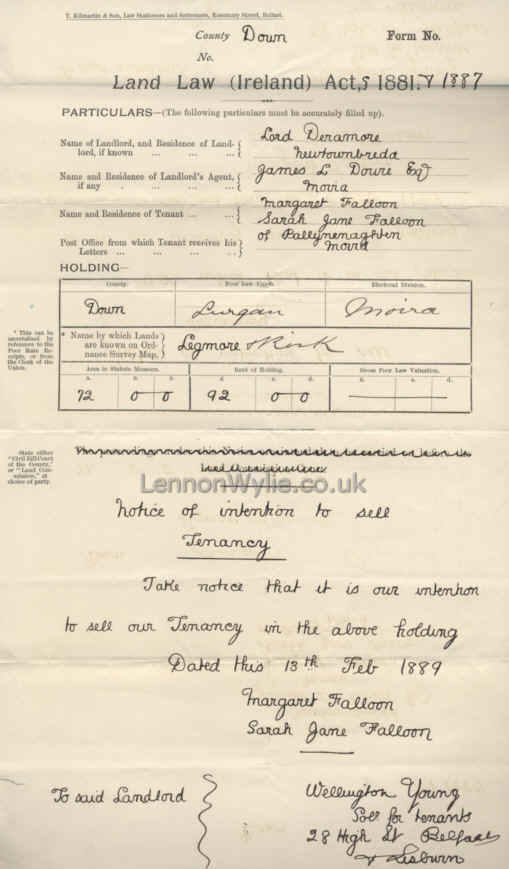 T. Kilmartin & Son, Law Stationers and Scriveners, Rosemary Street, Belfast.
County Down Form No.
No.
Land Law (Ireland) Act,s 1881. & 1887
PARTICULARS—(The following particulars must be accurately filled up).
Name of Landlord, and Residence of Land- Lord Deramore
lord, if known ... ... ... Newtownbreda
Name and Residence of Landlord's Agent, James L Dowre Esq
if any . ... ... ... Moira
Margaret Falloon
Name and Residence of Tenant ... ... Sarah Jane Falloon
Post Office from which Tenant receives his of Ballynenaghten
Letters ... ... ... ... Moira
HOLDING—
County. Poor Law Union. Electoral Division.
Down Lurgan Moira
* This can be
ascertained by
reference to the
Poor Rate Re-
ceipts, or from
the Clerk of the
Union.
* Name by which Lands
are known on Ord-
nance Survey Map,
Legmore & Kirk
Area in Statute Measure. Rent of Holding. Gross Poor Law Valuation.
a. r. p. £ s. d. £ s. d.
72 0 0 92 0 0
State either
"Civil Bill Court
of the County,"
or "Land Com-
mission," at
choice of party.
LennonWylie.co.uk
Notice of intention to sell
Tenancy
Take notice that it is our intention
to sell our Tenancy in the above holding
Dated this 13th Feb 1889
Margaret Falloon
Sarah Jane Falloon
To said Landlord
Wellington Young
Solr for tenants
28 High St Belfast
& Lisburn